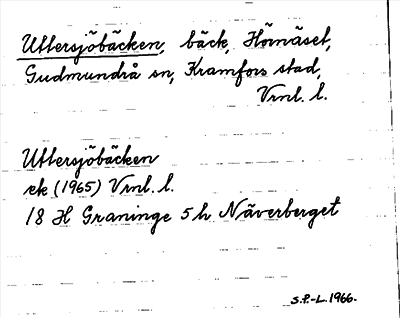 Uttersjöbäcken, bäck, Hörnäset,
Gudmundrå sn, Kramfors stad,
Vrnl. l.
Uttersjöbäcken
ek (1965) Vrnl. l.
18 H Graninge 5 h Näverberget
S.P.-L. 1966.